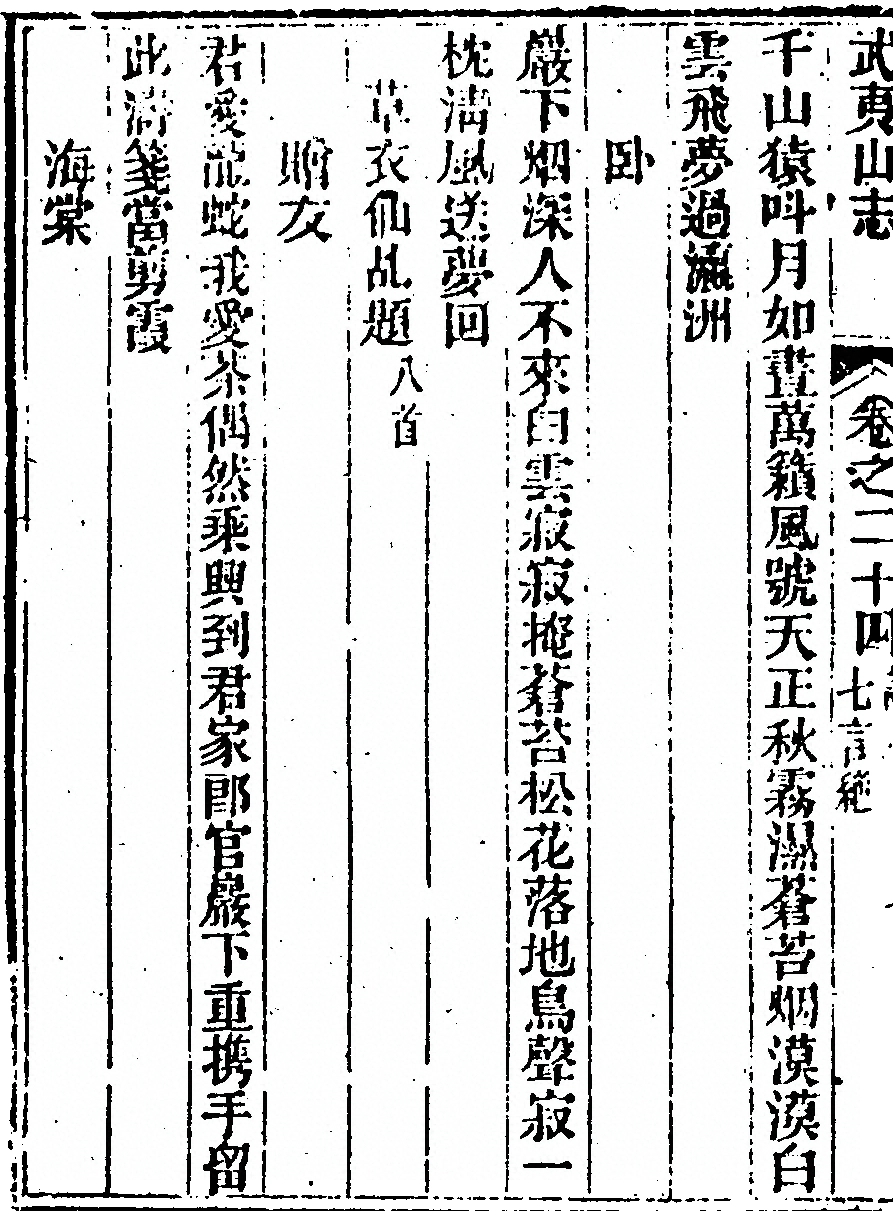 武夷山志 卷之二十四 七言絶
千山猿呌月如晝萬籟風號天正秋霧濕蒼苔烟漠漠白
雲飛夢過瀛洲
卧
巖下烟深人不來白雲寂寂掩蒼苔松花落地鳥聲寂一
枕淸風送夢回
草衣仙乩題 八首
贈友
君愛龍蛇我愛茶偶然乘興到君家郎官巖下重携手留
此濤箋當剪霞
海棠